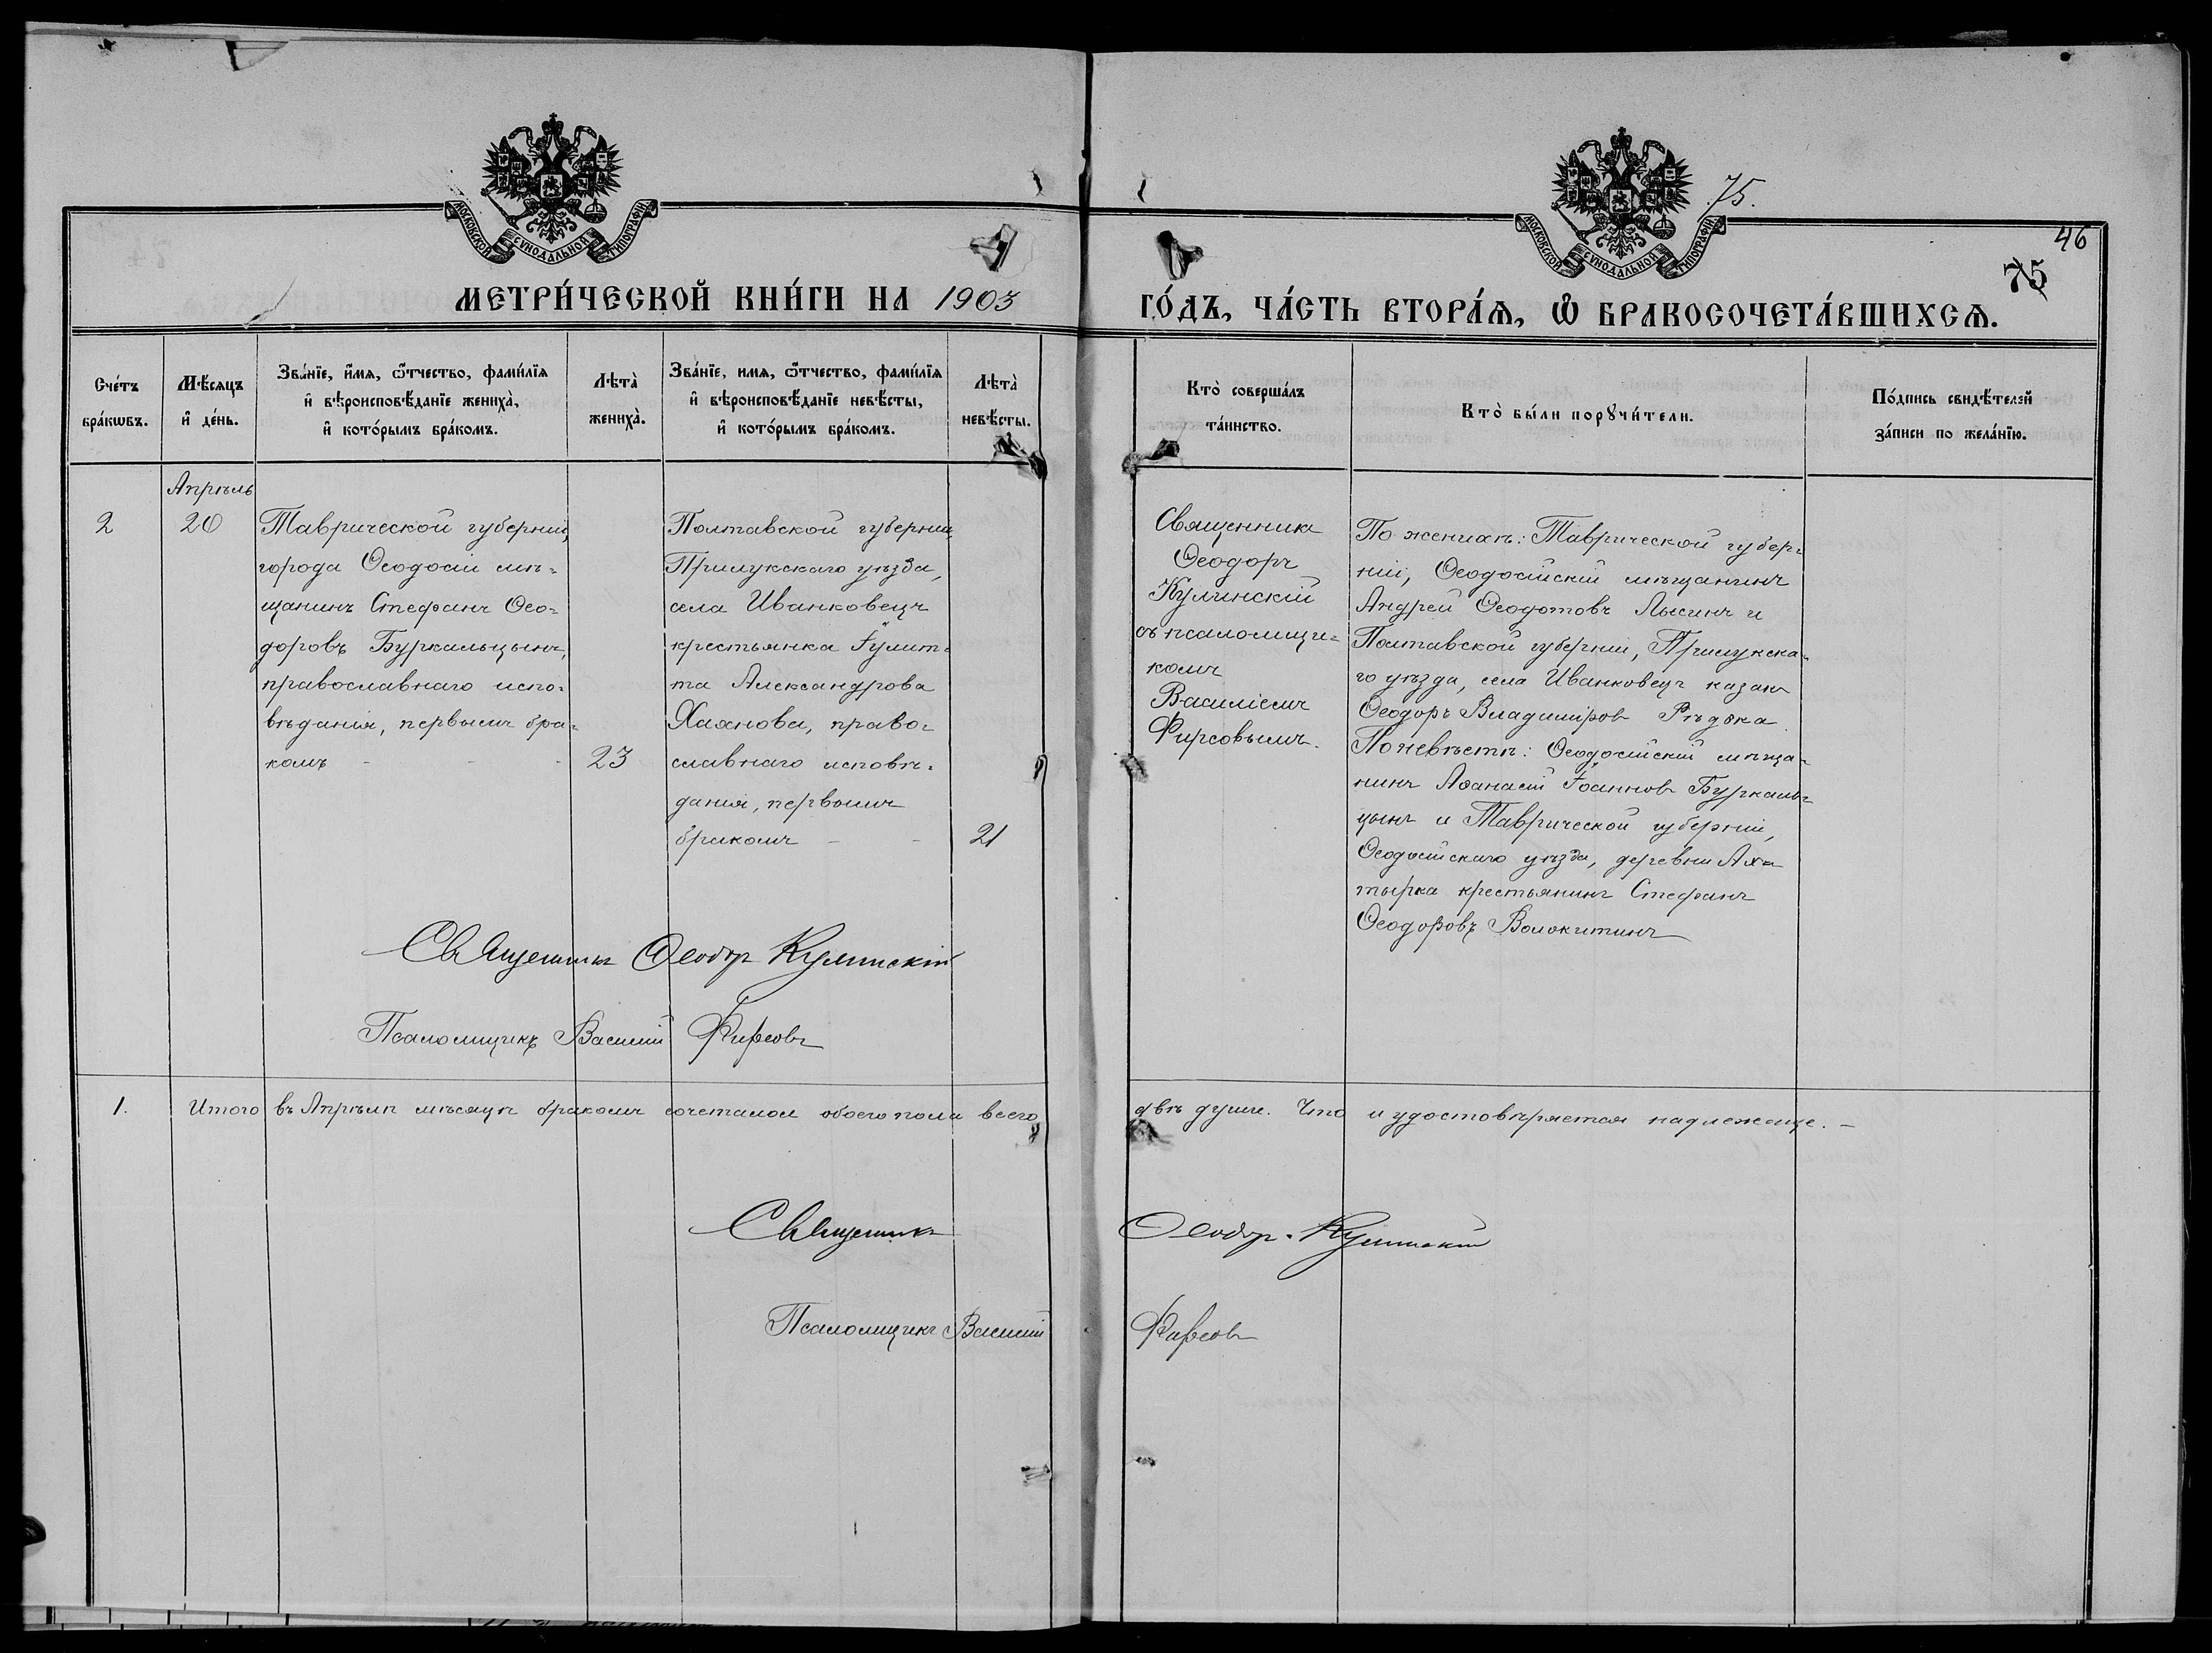 МОСКОВСКОЙ СѴНОДАЛЬНОЙ ТИПОГРАФІИ
МОСКОВСКОЙ СѴНОДАЛЬНОЙ ТИПОГРАФІИ
75.
46
75
МЕТРИ́ЧЕСКОЙ КНИ́ГИ НА 1903
ГО́ДЪ, ЧА́СТЬ ВТОРА́Ѧ, Ѡ҆ БРАКОСОЧЕТА́ВШИХСѦ.
Сче́тъ
бра́кѡвъ.
Мѣ́сяцъ
и҆ де́нь.
Зва́нїе, и҆́мѧ, ѻ҆́тчество, фами́лїѧ
и҆ вѣроисповѣ́данїе жениха̀,
и҆ кото́рымъ бра́комъ.
Лѣта̀
жениха̀.
Зва́нїе, имѧ, ѻ҆́тчество, фами́лїѧ
и҆ вѣроисповѣ́данїе невѣ́сты,
и҆ кото́рымъ бра́комъ.
Лѣта̀
невѣ́сты.
Кто̀ соверша́лъ
та́инство.
Кто̀ бы́ли порꙋчи́тели.
По́дпись свидѣ́телей
за́писи по жела́нїю.
Апрѣль
2
20
Таврической губерніи,
города Ѳеодосіи мѣ-
щанинъ Стефанъ Ѳео-
доровъ Буркальцынъ,
православнаго испо-
вѣданія, первымъ бра-
комъ - - -
23
Полтавской губерніи,
Прилукскаго уѣзда,
села Иванковецъ
крестьянка Іулит-
та Александрова
Хаянова, право-
славнаго исповѣ-
данія, первымъ
бракомъ - -
21
Священникъ
Ѳеодоръ
Кулинскій
съ псаломщи-
комъ
Василіемъ
Фирсовымъ.
По женихѣ: Таврической губер-
ніи, Ѳеодосійскій мѣщанинъ
Андрей Ѳеодотовъ Лысинъ и
Полтавской губерніи, Прилукска-
го уѣзда, села Иванковецъ казакъ
Ѳеодоръ Владиміровъ Рѣдька.
По невѣстѣ: Ѳеодосійскій мѣща-
нинъ Аѳанасій Іоанновъ Буркаль-
цынъ и Таврической губерніи,
Ѳеодосійскаго уѣзда, деревни Ах-
тырка крестьянинъ Стефанъ
Ѳеодоровъ Волокитинъ
Священникъ Ѳеодоръ Кулинскій
Псаломщикъ Василій Фирсовъ
1. Итого въ Апрѣлѣ мѣсяцѣ бракомъ сочеталось обоего пола всего
двѣ души. Что и удостовѣряется надлежаще. -
Священникъ Ѳеодоръ Кулинскій
Псаломщикъ Василій Фирсовъ